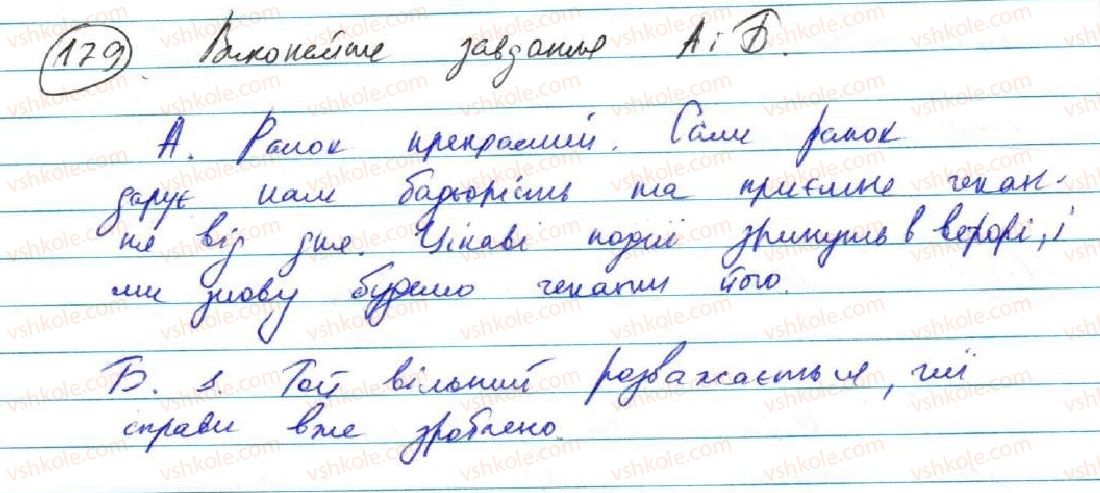 179. Виконайте завдання А і Б.
А. Ранок прекрасний. Саме ранок
дарує нам бадьорість та приємне чекан-
ня від дня. Цікаві події зринуть в вечорі, і
ми знову будемо чекати його.
Б. 1. Той вільний розважається, чиї
справи вже зроблено.